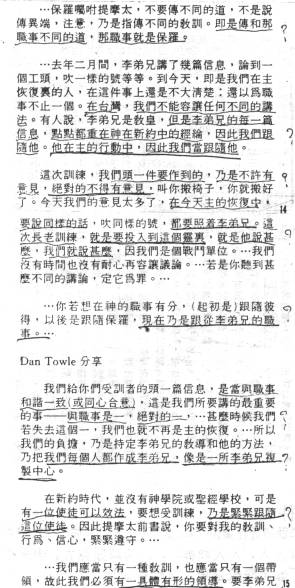 …保羅囑咐提摩太，不要傳不同的道，不是說
傳異端，注意，乃是指傳不同的教訓。即是傳和那
職事不同的道，那職事就是保羅。
…去年二月間，李弟兄講了幾篇信息，論到一
個工頭，吹一樣的號等等。到今天，即是我們在主
恢復裏的人，在這件事上還是不大清楚；還以爲職
事不止一個。在台灣，我們不能容讓任何不同的講
法。有人說，李弟兄是教皇，但是李弟兄的每一篇
信息，點點都重在神在新約中的經綸，因此我們跟
隨他。他在主的行動中，因此我們當跟隨他。
這次訓練，我們頭一件要作到的，乃是不許有
意見，絕對的不得有意見，叫你搬椅子，你就搬好
了。今天我們的意見太多了，在今天主的恢復中，
14
要說同樣的話，吹同樣的號，都要照着李弟兄。這
次長老訓練，就是要投入到這個靈裏，就是他說甚
麼，我們就說甚麼，因我們是個戰鬥單位。…我們
沒有時間也沒有耐心再容讓議論。…若是你聽到甚
麼不同的講論，定它爲罪。…
…你若想在神的職事有分，(起初是)跟隨彼
得，以後是跟隨保羅，現在乃是跟從李弟兄的職
事。…
Dan Towle 分享
我們給你們受訓者的頭一篇信息，是當與職事
和諧一致(或同心合意)，這是我們所要講的最重要
的事——與職事是一，絕對的一，…甚麼時候我們
若失去這個一，我們也就不再是主的恢復。…所以
我們的負擔，乃是持定李弟兄的敎導和他的方法，
乃把我們每個人都作成李弟兄，像是一所李弟兄複
製中心。
在新約時代，並沒有神學院或聖經學校，可是
有一位使徒可以效法，要想受訓練，乃是緊緊跟隨
這位使徒。因此提摩太前書說，你要對我的敎訓、
行爲、信心，緊緊遵守。…
…我們應當只有一種敎訓，也應當只有一個帶
領，故此我們必須有一具體有形的領導。要李弟兄
15